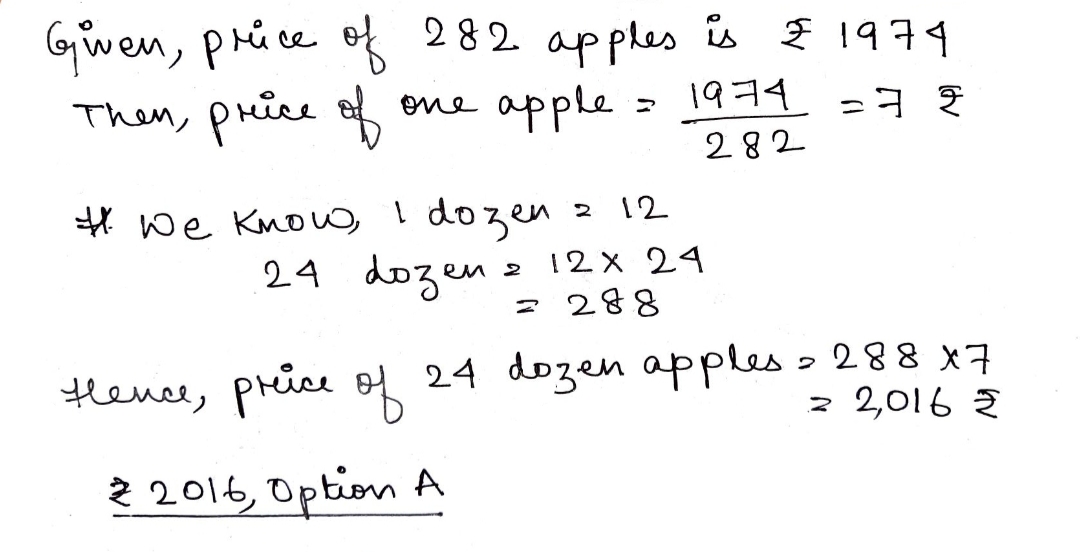 Given, price of 282 apples is ₹ 1974
Then, price of one apple = 1974/282 = 7 ₹
# We know, 1 dozen = 12
24 dozen = 12 x 24
= 288
Hence, price of 24 dozen apples = 288 x 7
= 2,016 ₹
₹ 2016, Option A